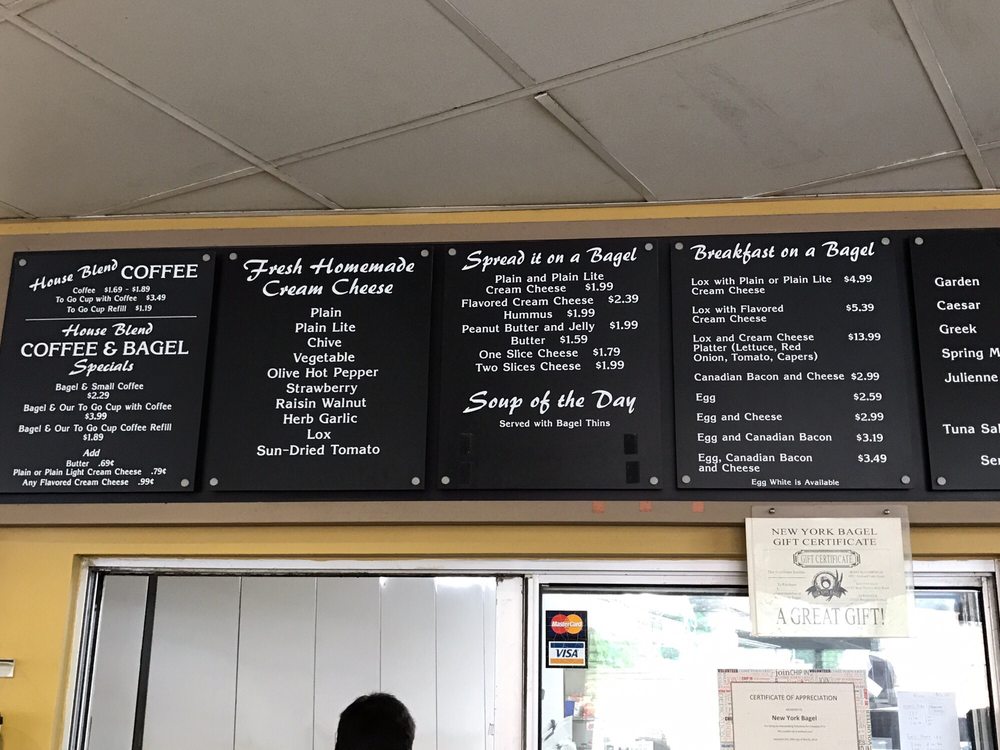 House Blend COFFEE
Coffee $1.69 - $1.89
To Go Cup with Coffee $3.49
To Go Cup Refill $1.19
House Blend
COFFEE & BAGEL
Specials
Bagel & Small Coffee
$2.29
Bagel & Our To Go Cup with Coffee
$3.99
Bagel & Our To Go Cup Coffee Refill
$1.89
Add
Butter .69¢
Plain or Plain Light Cream Cheese .79¢
Any Flavored Cream Cheese .99¢
Fresh Homemade
Cream Cheese
Plain
Plain Lite
Chive
Vegetable
Olive Hot Pepper
Strawberry
Raisin Walnut
Herb Garlic
Lox
Sun-Dried Tomato
Spread it on a Bagel
Plain and Plain Lite
Cream Cheese $1.99
Flavored Cream Cheese $2.39
Hummus $1.99
Peanut Butter and Jelly $1.99
Butter $1.59
One Slice Cheese $1.79
Two Slices Cheese $1.99
Soup of the Day
Served with Bagel Thins
Breakfast on a Bagel
Lox with Plain or Plain Lite $4.99
Cream Cheese
Lox with Flavored $5.39
Cream Cheese
Lox and Cream Cheese $13.99
Platter (Lettuce, Red
Onion, Tomato, Capers)
Canadian Bacon and Cheese $2.99
Egg $2.59
Egg and Cheese $2.99
Egg and Canadian Bacon $3.19
Egg, Canadian Bacon $3.49
and Cheese
Egg White is Available
Garden
Caesar
Greek
Spring M
Julienne
Tuna Sal
Ser
NEW YORK BAGEL
GIFT CERTIFICATE
GIFT CERTIFICATE
A GREAT GIFT!
MasterCard
VISA
VOLUNTEER
joinCHIP IN
CERTIFICATE OF APPRECIATION
New York Bagel